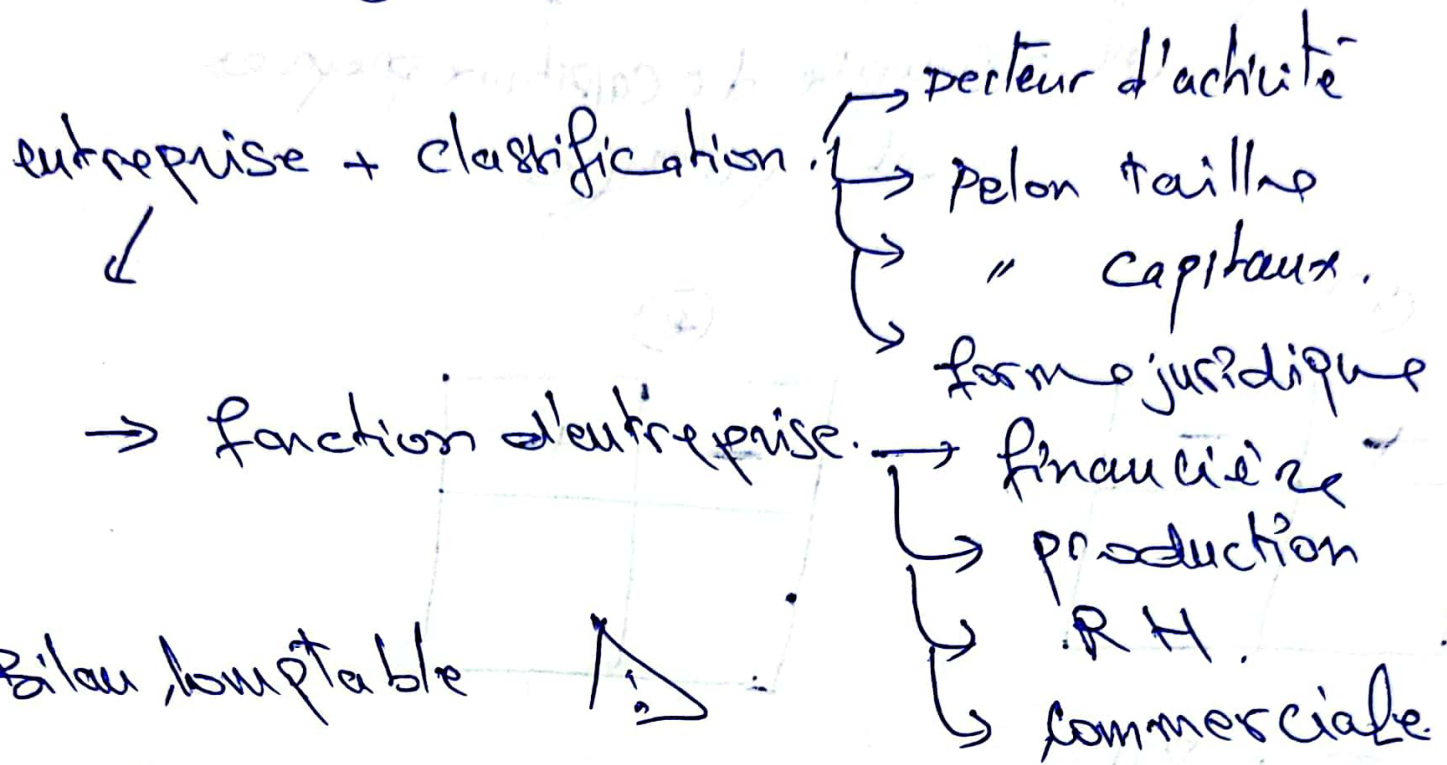 entreprise + classification. → secteur d'activité
→ selon taille
→ " capitaux.
→ forme juridique
→ fonction d'entreprise. → financière
→ production
→ RH.
→ commerciale.
Bilan comptable ⚠